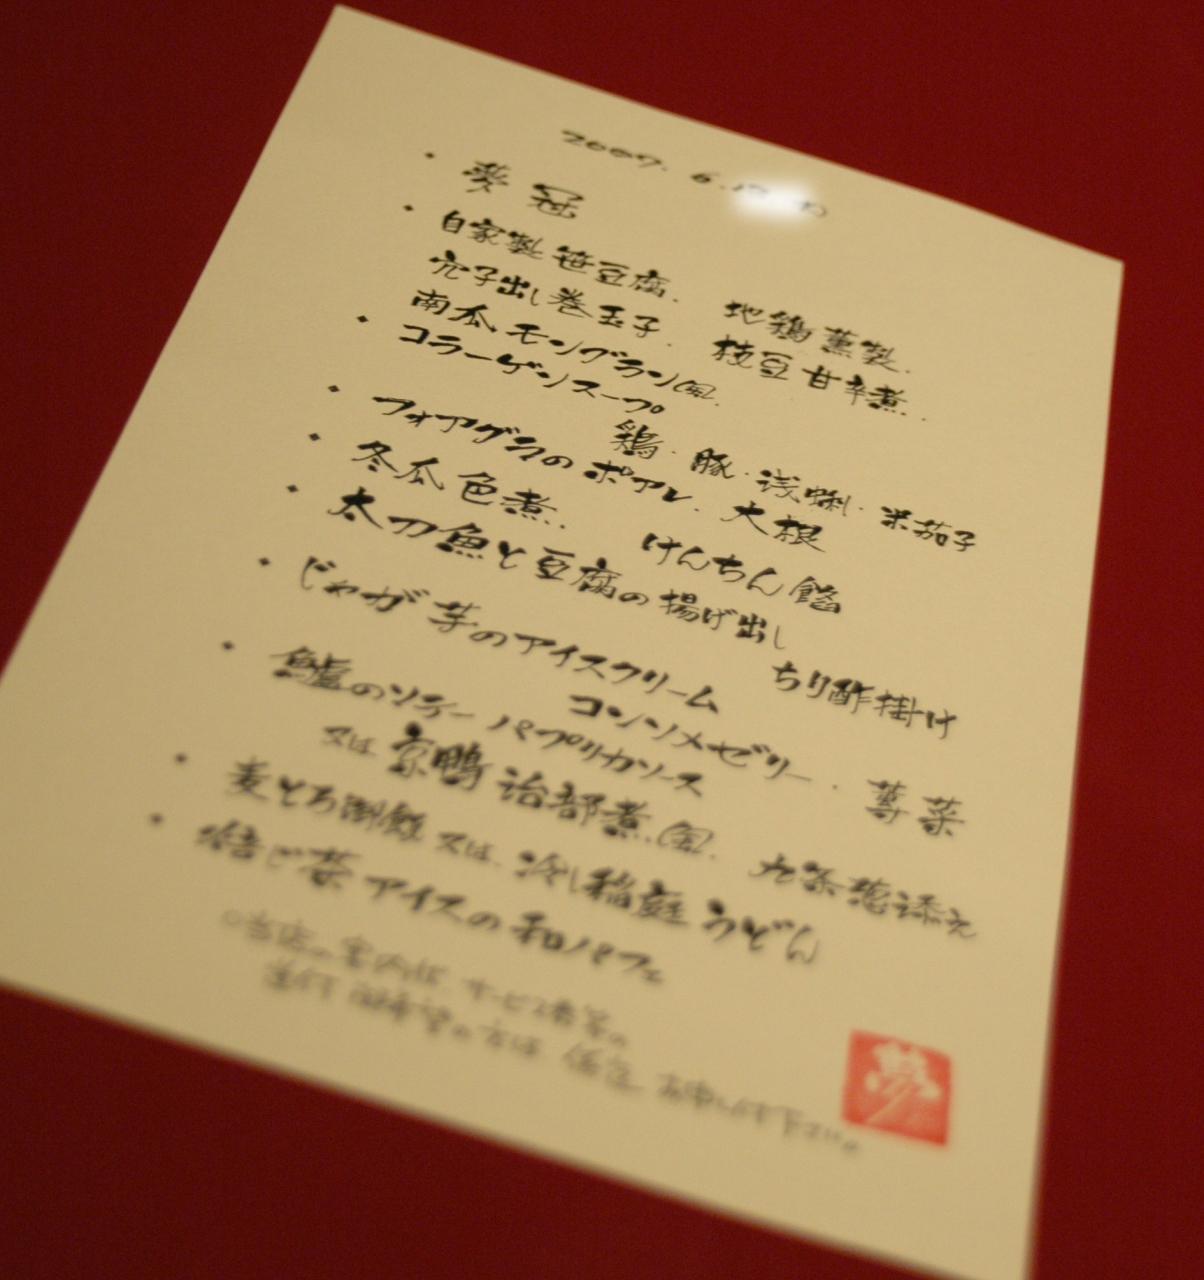 2007. 6.
葵 冠
自家製笹豆腐. 地鶏薫製.
穴子出し巻玉子. 枝豆甘辛煮.
南瓜モンブラン風.
コラーゲンスープ
鶏・豚・浅蜊・米茄子
フォアグラのポアレ. 大根
冬瓜色煮. けんちん餡
太刀魚と豆腐の揚げ出し
ちり酢掛け
じゃが芋のアイスクリーム
コンソメゼリー. 蓴菜
鱸のソテー パプリカソース
又は 京鴨治部煮風. 九条葱添え
麦とろ御飯 又は. 冷し稲庭うどん
焙じ茶アイスの和パフェ
夢